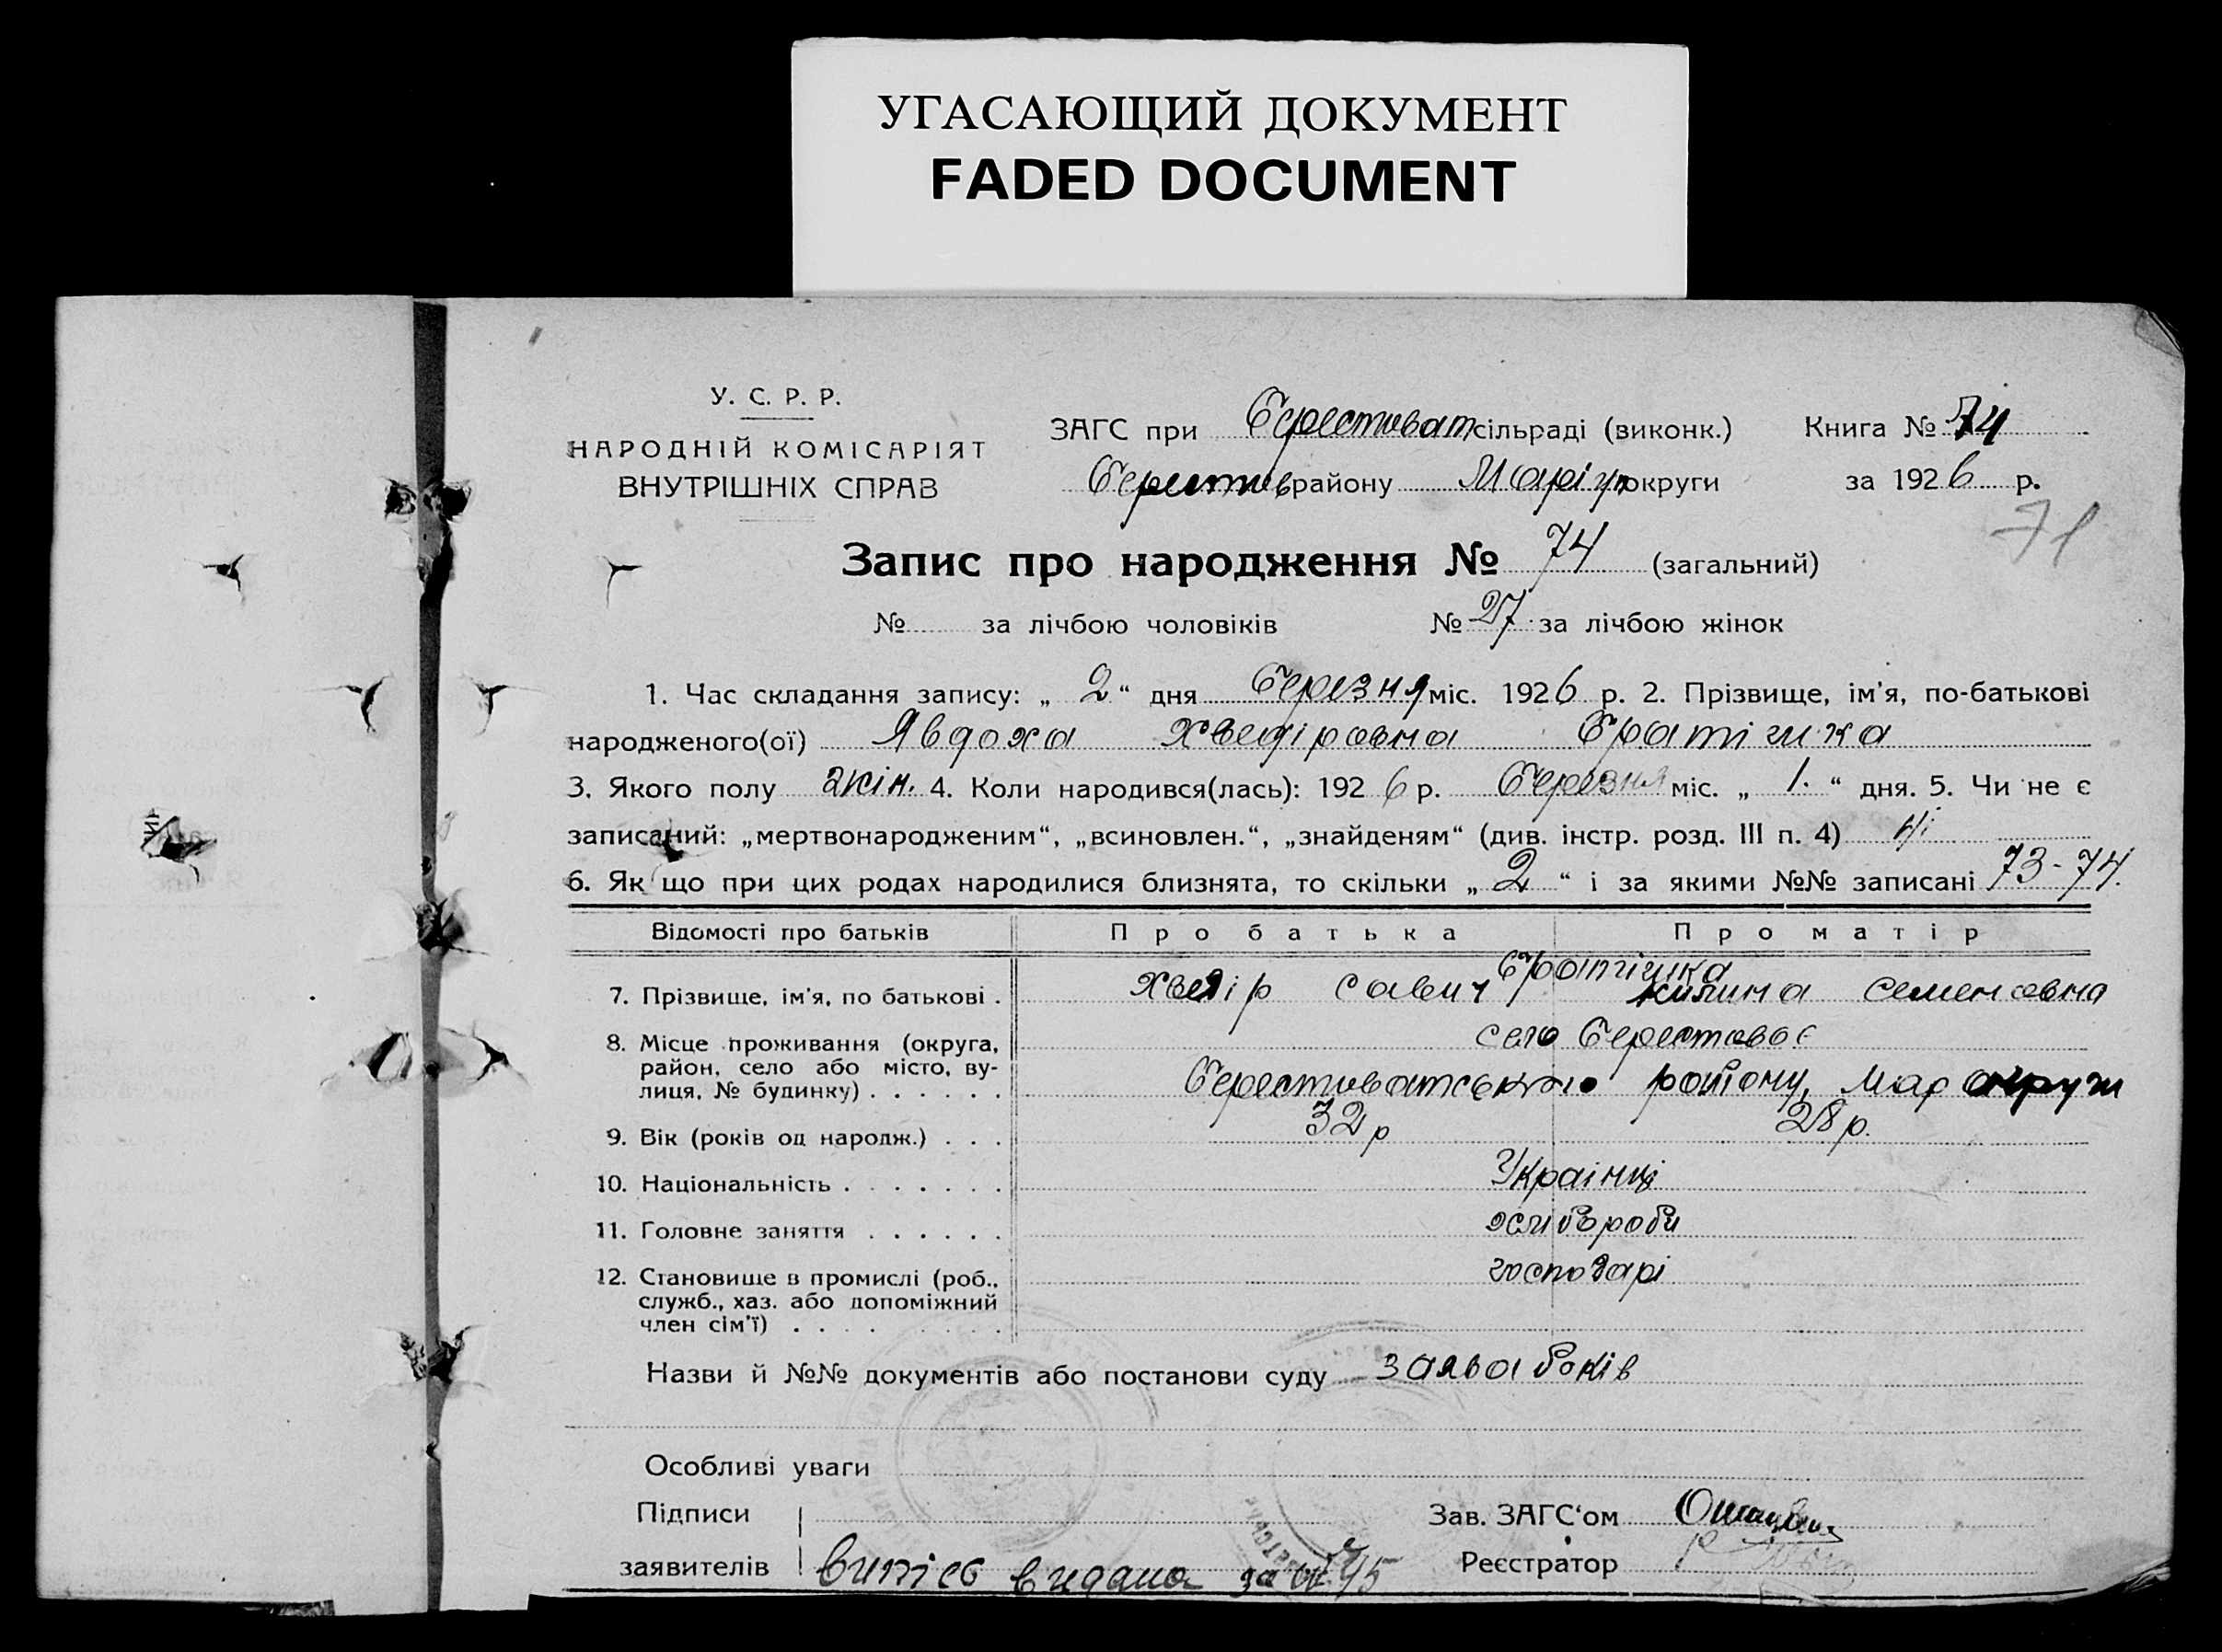 УГАСАЮЩИЙ ДОКУМЕНТ
FADED DOCUMENT
У. С. Р. Р.
НАРОДНІЙ КОМІСАРІЯТ
ВНУТРІШНІХ СПРАВ
ЗАГС при Берестоват сільраді (виконк.) Книга № 74
Берестов району Маріуп округи за 1926 р.
71
Запис про народження № 74 (загальний)
№ за лічбою чоловіків № 27 за лічбою жінок
1. Час складання запису: „ 2 “ дня Березня міс. 1926 р. 2. Прізвище, ім'я, по-батькові
народженого(ої) Явдоха Хведіровна Братішка
3. Якого полу жін. 4. Коли народився(лась): 1926 р. Березня міс. „ 1. “ дня. 5. Чи не є
записаний: „мертвонародженим“, „всиновлен.“, „знайденям“ (див. інстр. розд. III п. 4) ні
6. Як що при цих родах народилися близнята, то скільки „ 2 “ і за якими №№ записані 73-74.
Відомості про батьків Про батька Про матір
Братішка
7. Прізвище, ім'я, по батькові . Хведір Савич Килина Семеновна
8. Місце проживання (округа, село Берестовоє
район, село або місто, ву-
лиця, № будинку) . . . . . . Берестоватського району, Мар округи
9. Вік (років од народж.) . . . 32 р 28 р.
10. Національність . . . . . . . Українці
11. Головне заняття . . . . . . хлібороби
12. Становище в промислі (роб., господарі
служб., хаз. або допоміжний
член сім'ї) . . . .
Назви й №№ документів або постанови суду заява боків
Особливі уваги
Підписи Зав. ЗАГС'ом
заявителів випісь видана за № 45 Реєстратор